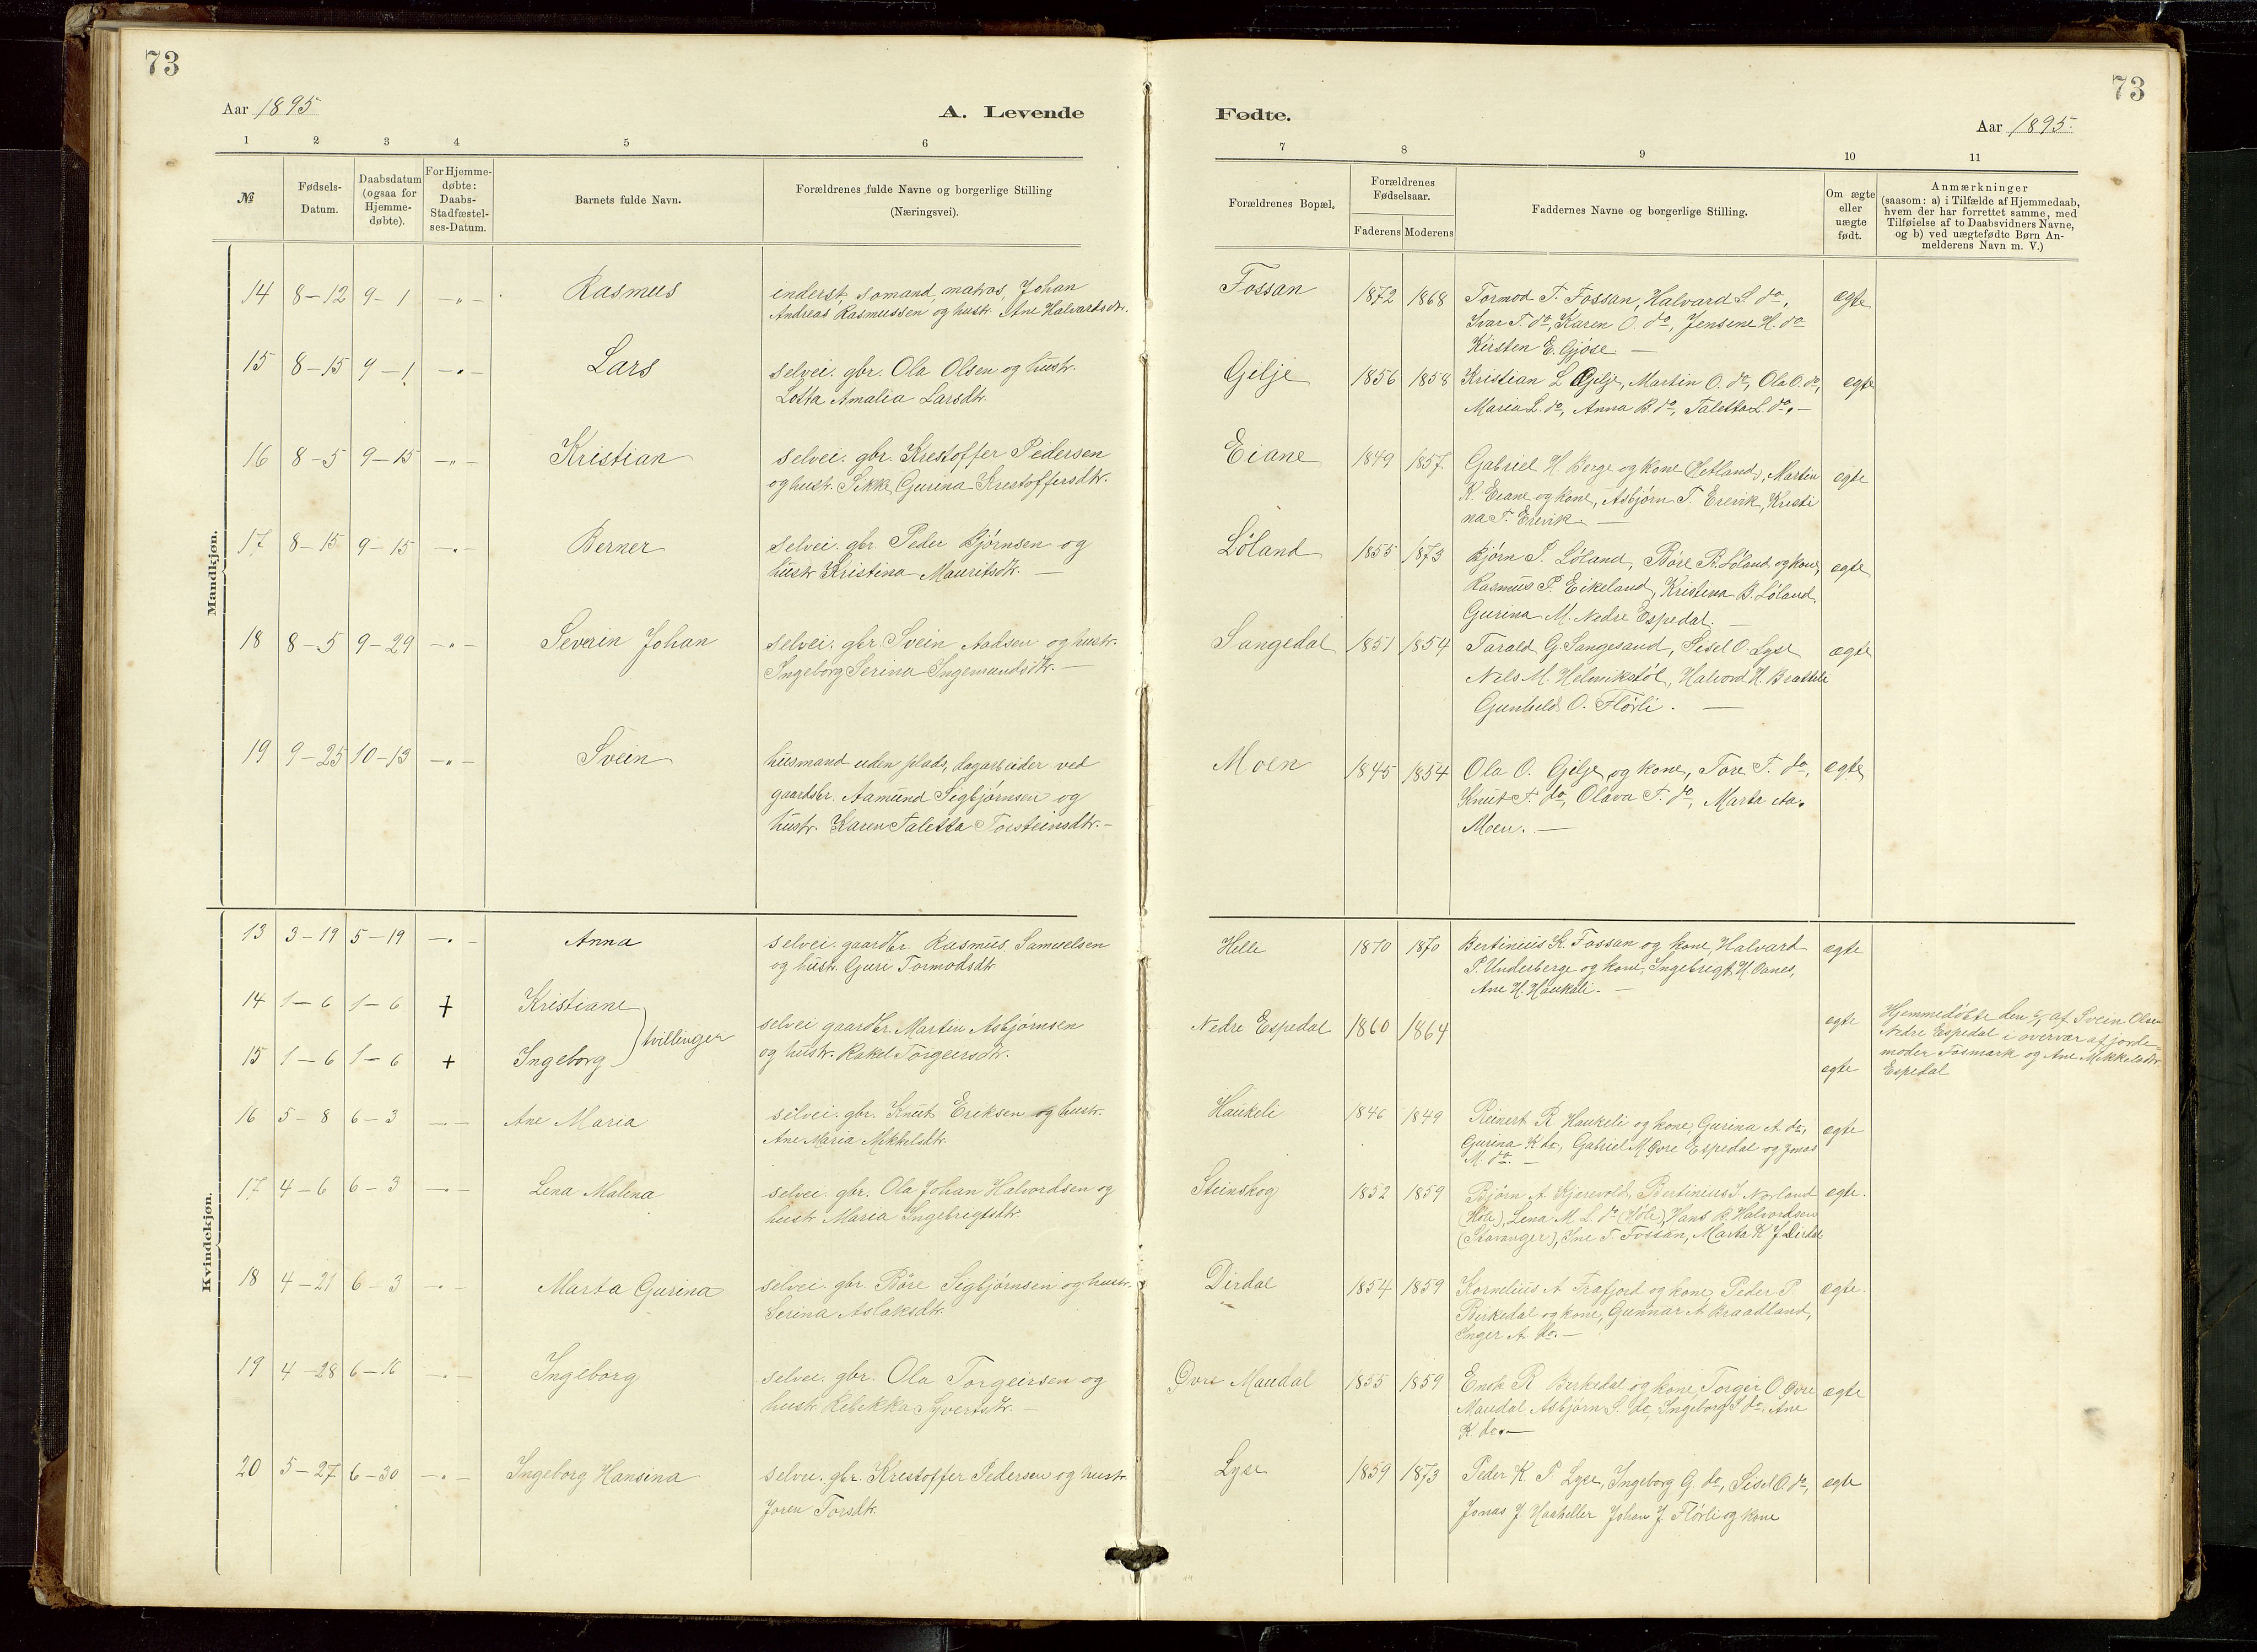 73
Aar 1895
A. Levende
1 2 3 4 5 6
№
Fødsels-
Datum.
Daabsdatum
(ogsaa for
Hjemme-
døbte).
For Hjemme-
døbte:
Daabs-
Stadfæstel-
ses-Datum.
Barnets fulde Navn.
Forældrenes fulde Navne og borgerlige Stilling
(Næringsvei).
Mandkjøn.
14 8-12 9-1 -"- Rasmus
inderst, sømand, matros, Johan
Andreas Rasmussen og hustr. Ane Halvardsdtr.
15 8-15 9-1 -"- Lars
selvei. gbr. Ola Olsen og hustr.
Lotta Amalia Larsdtr.
16 8-5 9-15 -"- Kristian
selvei. gbr. Krestoffer Pedersen
og hustr. Sikke Gurina Krestoffersdtr.
17 8-15 9-15 -"- Berner
selvei. gbr. Peder Bjørnsen og
hustr. Kristina Mauritsdtr. —
18 8-5 9-29 -"- Severin Johan
selvei. gbr. Svein Aadsen og hustr.
Ingeborg Serina Ingemundsdtr. —
19 9-25 10-13 -"- Svein
husmand uden plads, dagarbeider ved
gaardsbr. Aamund Sigbjørnsen og
hustr. Karen Taletta Torsteinsdtr. —
Kvindekjøn.
13 3-19 5-19 -"- Anna
selvei. gaardbr. Rasmus Samuelsen
og hustr. Guri Tormodsdtr
14 1-6 1-6 + Kristiane
15 1-6 1-6 + Ingeborg
tvillinger
selvei gaardbr. Martin Asbjørnsen
og hustr. Rakel Torgeirsdtr.
16 5-8 6-3 -"- Ane Maria
selvei. gbr. Knut Eriksen og hustr.
Ane Maria Mikkelsdtr.
17 4-6 6-3 -"- Lena Malena
selvei. gbr. Ola Johan Halvordsen og
hustr Maria Ingebrigtsdtr.
18 4-21 6-3 -"- Marta Gurina
selvei. gbr. Børe Sigbjørnsen og hustr.
Serina Aslaksdtr.
19 4-28 6-16 -"- Ingeborg
selvei. gbr. Ola Torgeirsen og
hustr Rebekka Syvertsdtr. —
20 5-27 6-30 -"- Ingeborg Hansina
selvei. gbr. Krestoffer Pedersen og hustr
Joren Torsdtr.
73
Fødte.
Aar 1895.
7 8 9 10 11
Forældrenes Bopæl.
Forældrenes
Fødselsaar.
Faderens Moderens
Faddernes Navne og borgerlige Stilling.
Om ægte
eller
uægte
født.
Anmærkninger
(saasom: a) i Tilfælde af Hjemmedaab,
hvem der har forrettet samme, med
Tilføielse af to Daabsvidners Navne,
og b) ved uægtefødte Børn An-
melderens Navn m. V.)
Fossan 1872 1868 Tormod T. Fossan, Halvard S. do, ægte
Ivar T. do, Karen O. do, Jensine H. do
Kirsten E. Gjøse. —
Gilje 1856 1858 Kristian L Gilje, Martin O. do, Ola O. do, egte
Maria L. do, Anna B. do, Taletta L. do. —
Eiane 1849 1857 Gabriel H. Berge og kone (Hetland), Martin egte
K. Eiane og kone, Asbjørn T. Erevik, Kristi
na T. Erevik. —
Løland 1855 1873 Bjørn P. Løland, Børe B. Løland og kone, egte
Rasmus P. Eikeland, Kristina B. Løland,
Gurina M. Nedre Espedal. —
Sangedal 1851 1854 Tarald G. Sangesand, Sisel O. Lyse ægte
Nils M. Helmikstøl, Halvord H. Bratteli
Gunhild O. Flørli. —
Moen 1845 1854 Ola O. Gilje og kone, Tore T. do, ægte
Knut T. do, Olava T. do, Marta Aa.
Moen. —
Helle 1870 1870 Bertinius K. Fossan og kone, Halvard egte
P. Underberge og kone, Ingebregt H. Oanes,
Ane H. Haukali. —
Nedre Espedal 1860 1864 egte
egte
Hjemmedøbte den 6/1 af Svein Olsen
Nedre Espedal i overvær af jorde-
moder Fosmark og Ane Mikkelsdtr
Espedal
Haukeli 1846 1849 Reinert R. Haukeli og kone, Gurina A. do, egte
Gurina K. do, Gabriel M. Øvre Espedal og Jonas
M. do. —
Steinskog 1852 1859 Bjørn A. Kjærvold, Bertinius I. Norland egte.
(Høle), Lena M. L. do (Høle), Hans B. Halvordsen
(Stavanger), Ine T. Fossan, Marta K J Dirdal
Dirdal 1854 1859 Kornelius A. Frafjord og kone, Peder P. egte.
Birkedal og kone, Gunnar A Braadland,
Inger A. do. —
Øvre Maudal 1855 1859 Endr R Berkedal og kone, Torger O. Øvre ægte
Maudal Asbjørn S. do, Ingeborg S do. Ane
K. do. —
Lyse 1859 1873 Peder K P Lyse, Ingeborg G. do, Sisel O. do, egte
Jonas J. Haaheller Johan J Flørli og kone